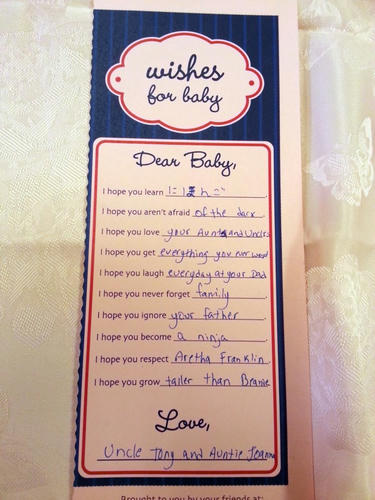 wishes
for baby
Dear Baby,
I hope you learn
I hope you aren't afraid of the dark.
I hope you love your Aunts and Uncles
I hope you get everything you ever want
I hope you laugh everyday at your Dad
I hope you never forget family.
I hope you ignore your father.
I hope you become a ninja.
I hope you respect Aretha Franklin.
I hope you grow taller than Beanie
Love,
Uncle Tony and Auntie Joanna
Brought to you by your friends at: